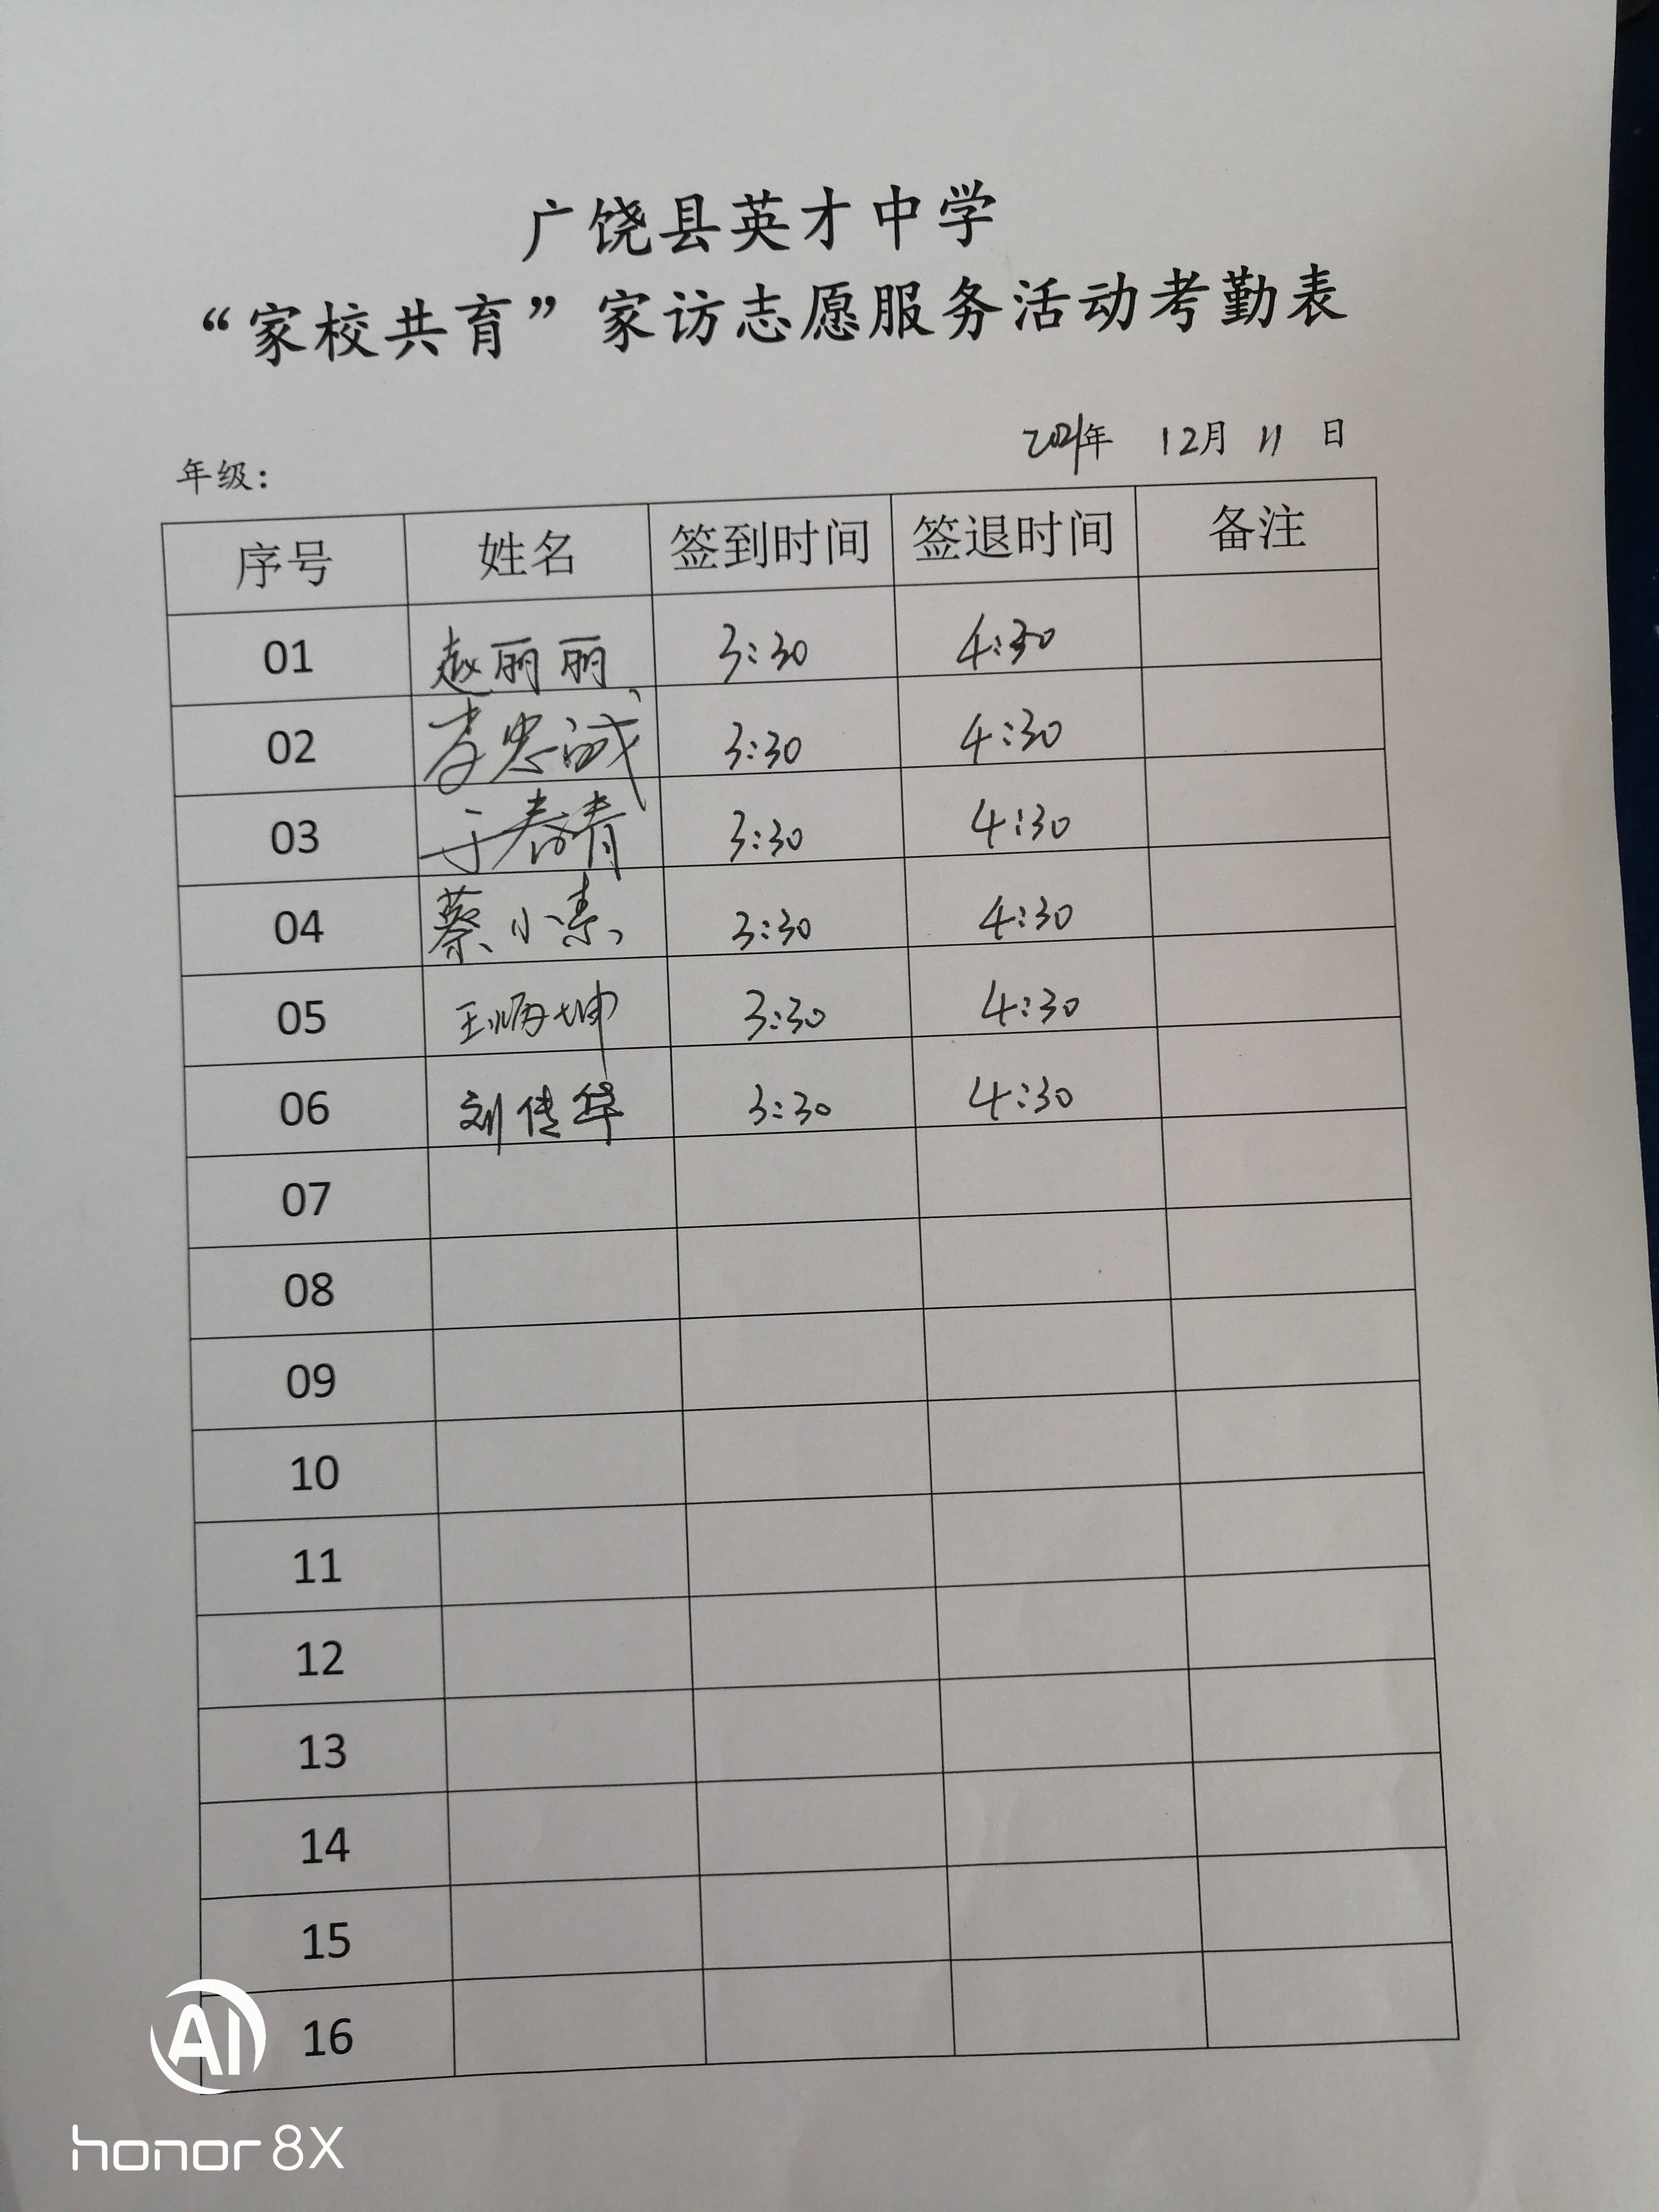 广饶县英才中学
“家校共育”家访志愿服务活动考勤表
2021年 12月 11 日
年级：
序号 姓名 签到时间 签退时间 备注
01 赵丽丽 3:30 4:30
02 李忠诚 3:30 4:30
03 于春青 3:30 4:30
04 蔡小素 3:30 4:30
05 3:30 4:30
06 刘传华 3:30 4:30
07
08
09
10
11
12
13
14
15
16
AI
honor 8X